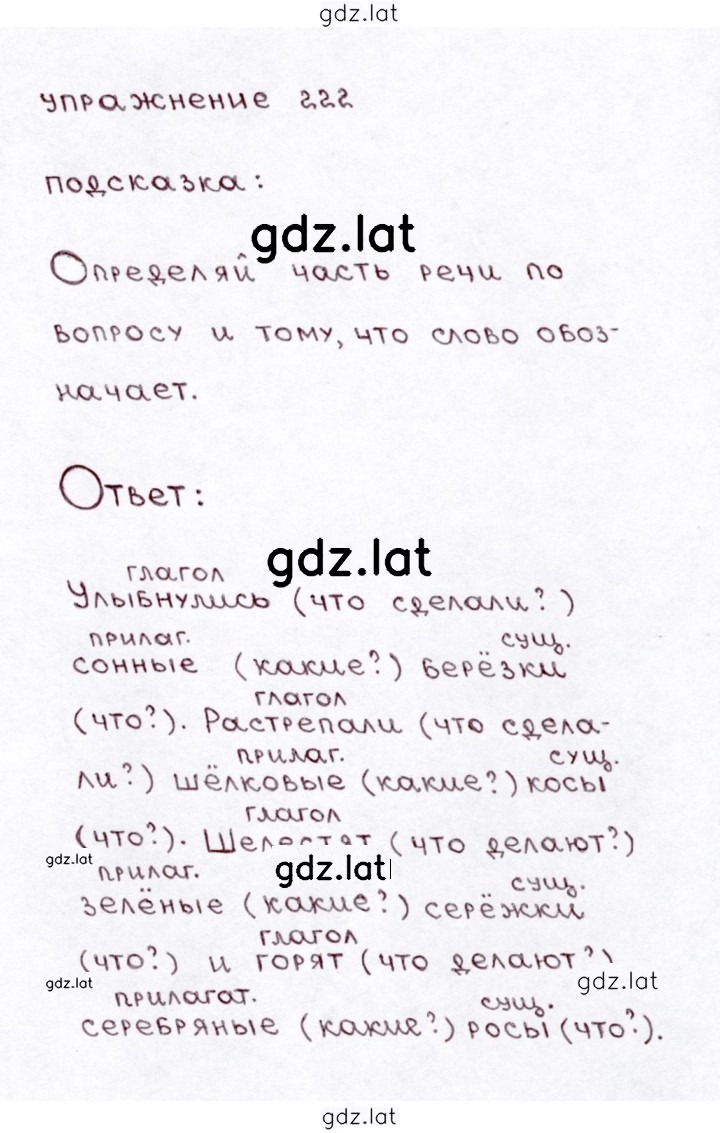 gdz.lat
упражнение 222
подсказка:
gdz.lat
Определяй часть речи по
вопросу и тому, что слово обоз-
начает.
Ответ:
gdz.lat
глагол
Улыбнулись (что сделали?)
прилаг. сущ.
сонные (какие?) берёзки
глагол
(что?). Растрепали (что сдела-
прилаг. сущ.
ли?) шёлковые (какие?) косы
глагол
(что?). Шелестят (что делают?)
gdz.lat
gdz.lat
прилаг. сущ.
зелёные (какие?) серёжки
глагол
(что?) и горят (что делают?)
gdz.lat
gdz.lat
прилагат. сущ.
серебряные (какие?) росы (что?).
gdz.lat